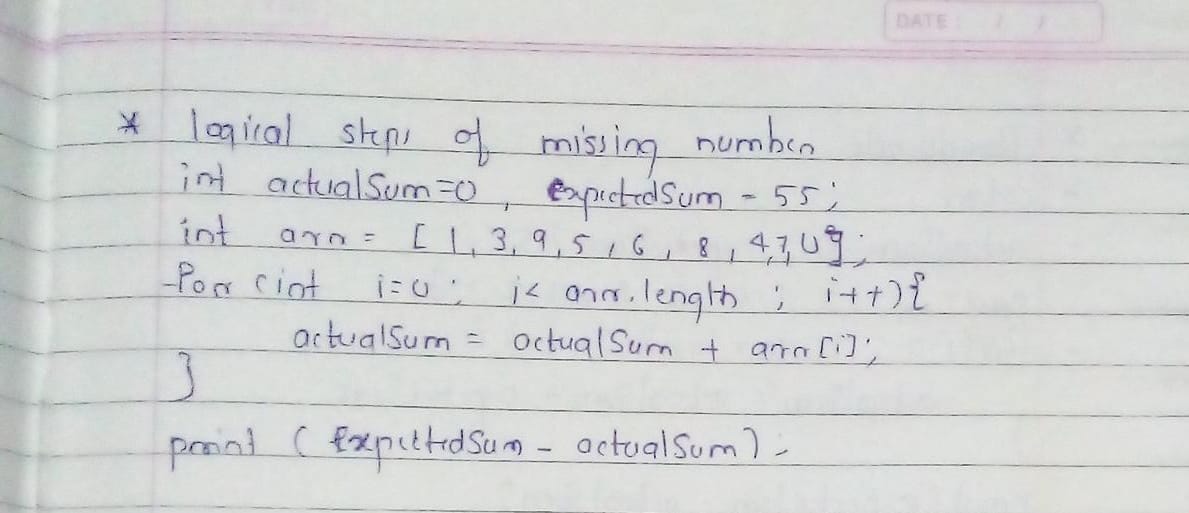 DATE : / /
* logical steps of missing number
int actualSum=0, expectedSum = 55;
int arr = [1, 3, 9, 5, 6, 8, 4, 7, 0];
for (int i=0; i< arr.length; i++){
actualSum = actualSum + arr[i];
}
print (ExpectedSum - actualSum);